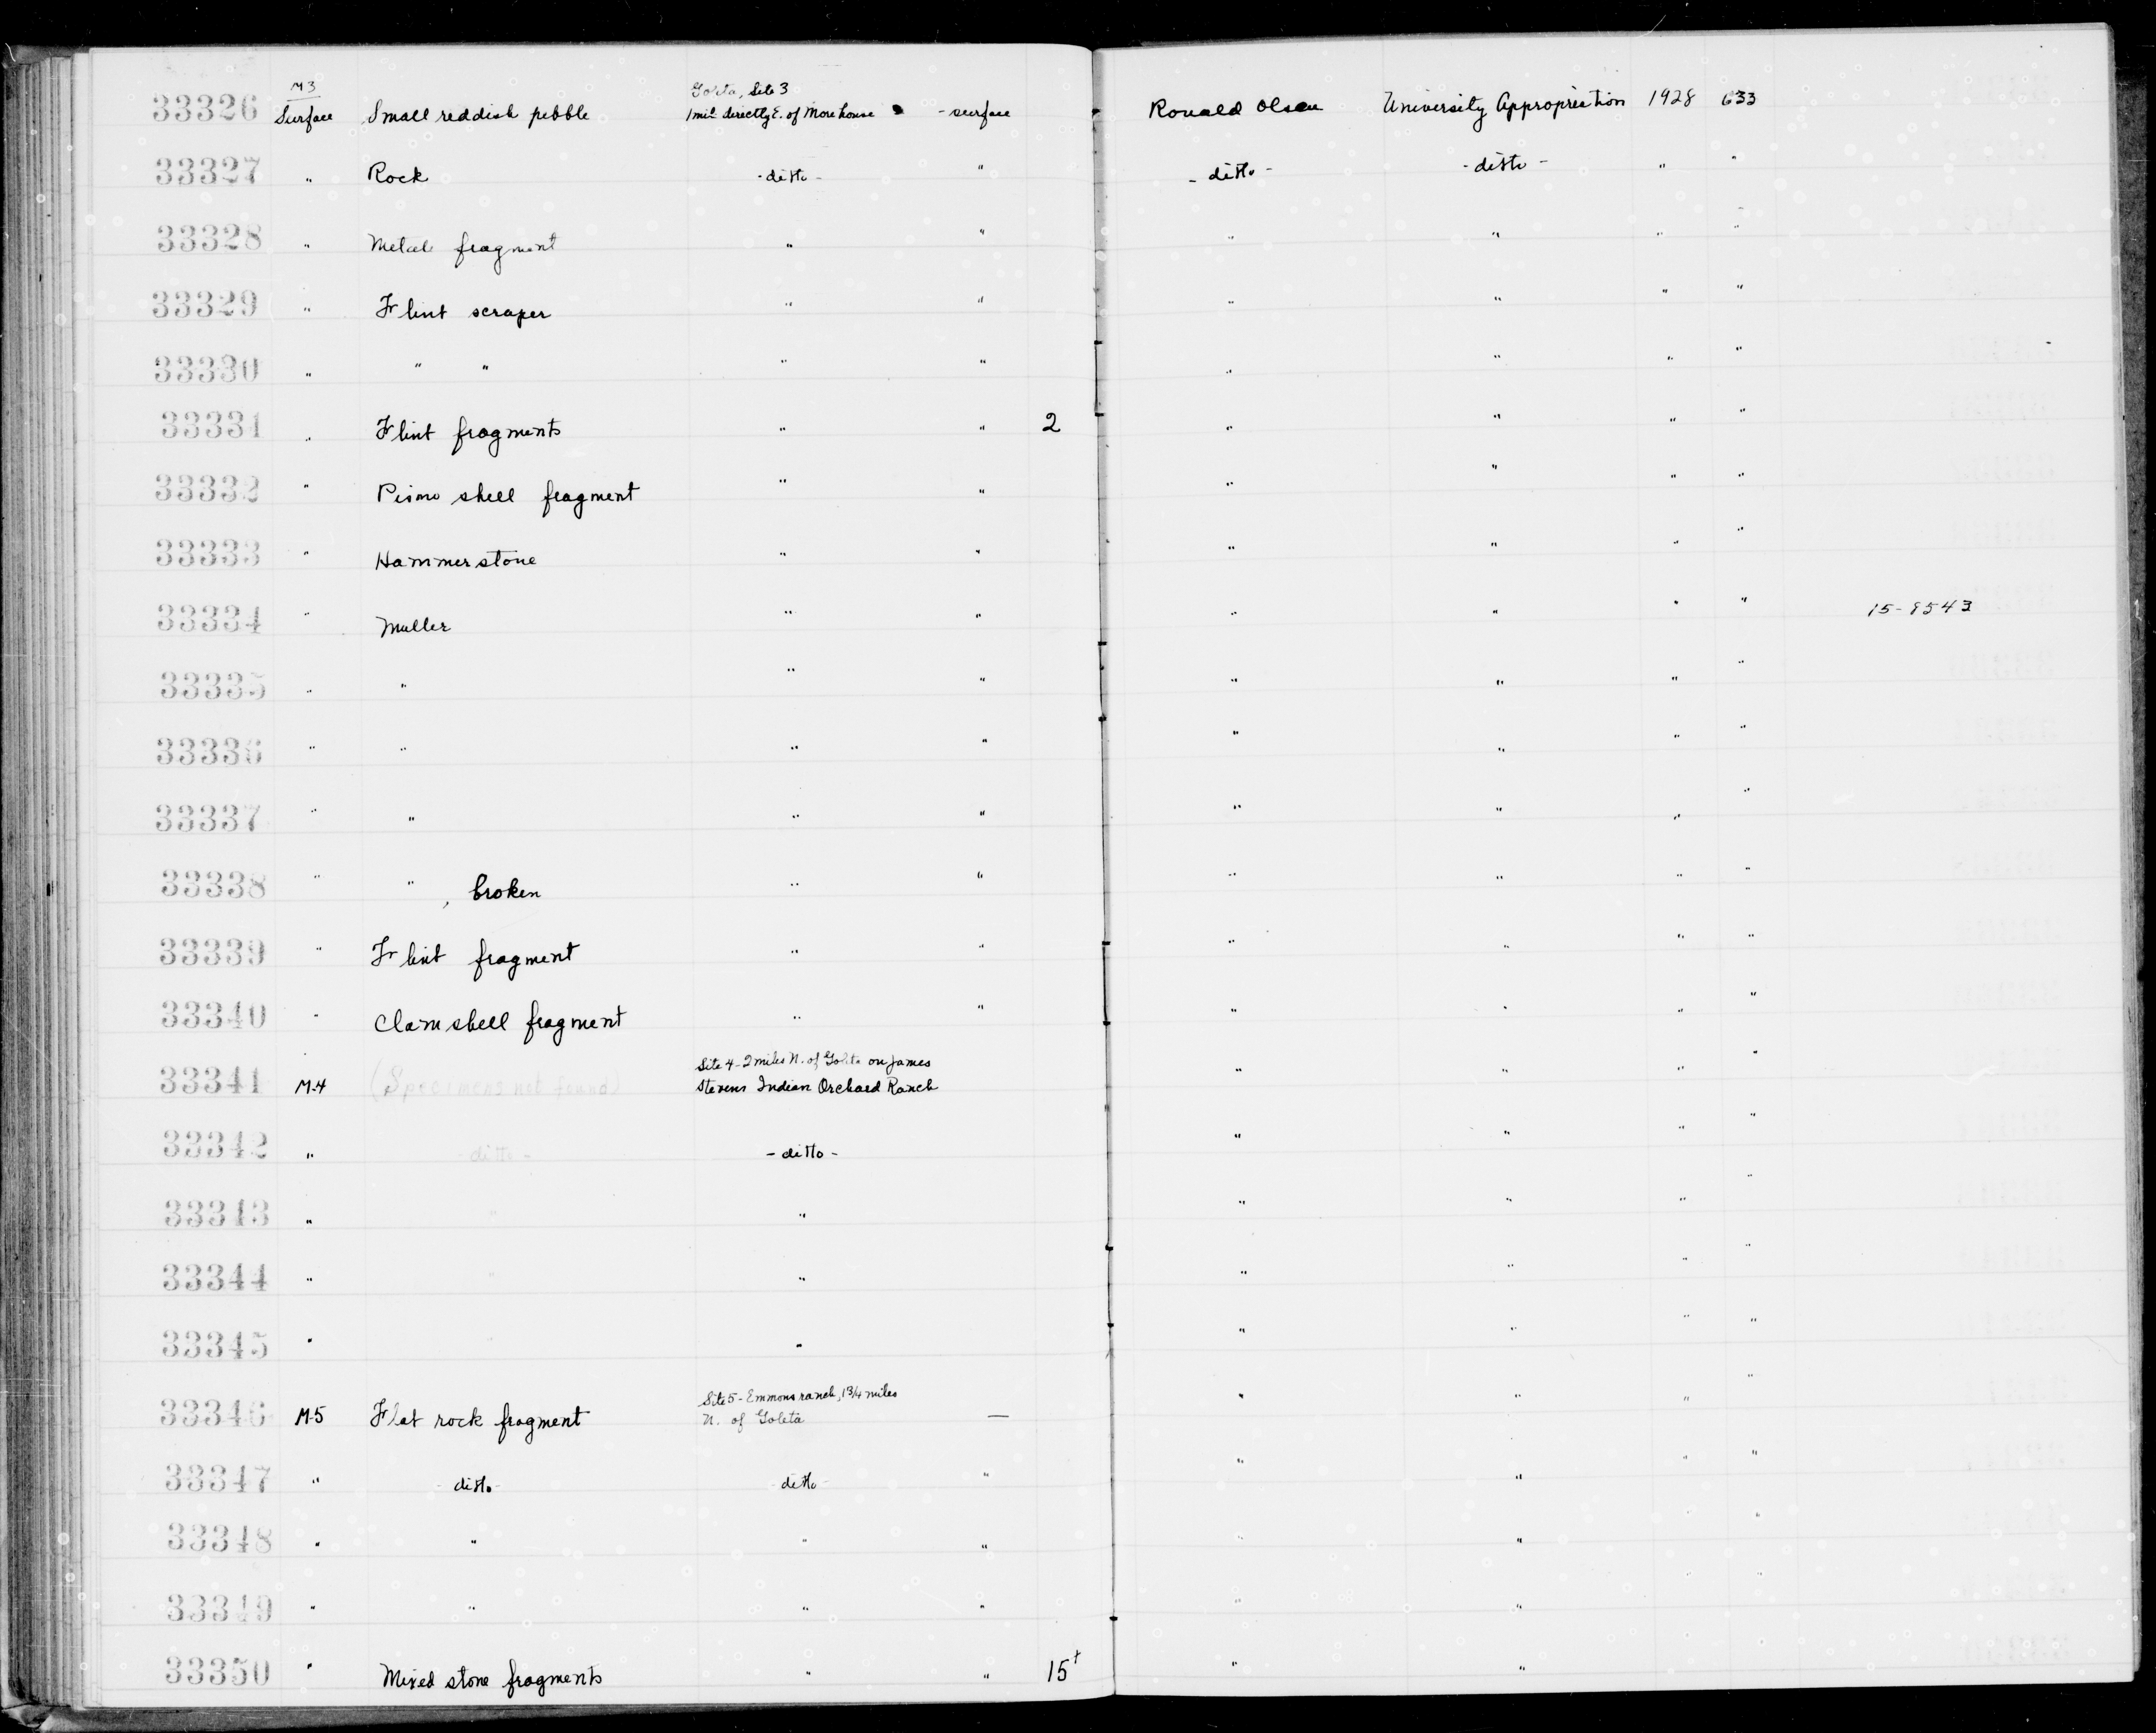 33326 M3 Surface Small reddish pebble Goleta, Site 3 1 mile directly E. of More house - surface Ronald Olson University Appropriation 1928 633
33327 " Rock - ditto - " - ditto - - ditto - " "
33328 " Metate fragment " " " " " "
33329 " Flint scraper " " " " " "
33330 " " " " " " " " "
33331 " Flint fragments " " 2 " " " "
33332 " Pismo shell fragment " " " " " "
33333 " Hammerstone " " " " " "
33334 " Muller " " " " " " 15-9543
33335 " " " " " " " "
33336 " " " " " " " "
33337 " " " " " " " "
33338 " " , broken " " " " " "
33339 " Flint fragment " " " " " "
33340 " Clam shell fragment " " " " " "
33341 M-4 (Specimens not found) Site 4 - 2 miles N. of Goleta on James Stevens Indian Orchard Ranch " " " "
33342 " - ditto - - ditto - " " " "
33343 " " " " " " "
33344 " " " " " " "
33345 " " " " " " "
33346 M-5 Flat rock fragment Site 5 - Emmons ranch, 1 3/4 miles N. of Goleta — " " " "
33347 " - ditto - - ditto - " " " " "
33348 " " " " " " "
33349 " " " " " " " "
33350 " Mixed stone fragments " " 15+ " "